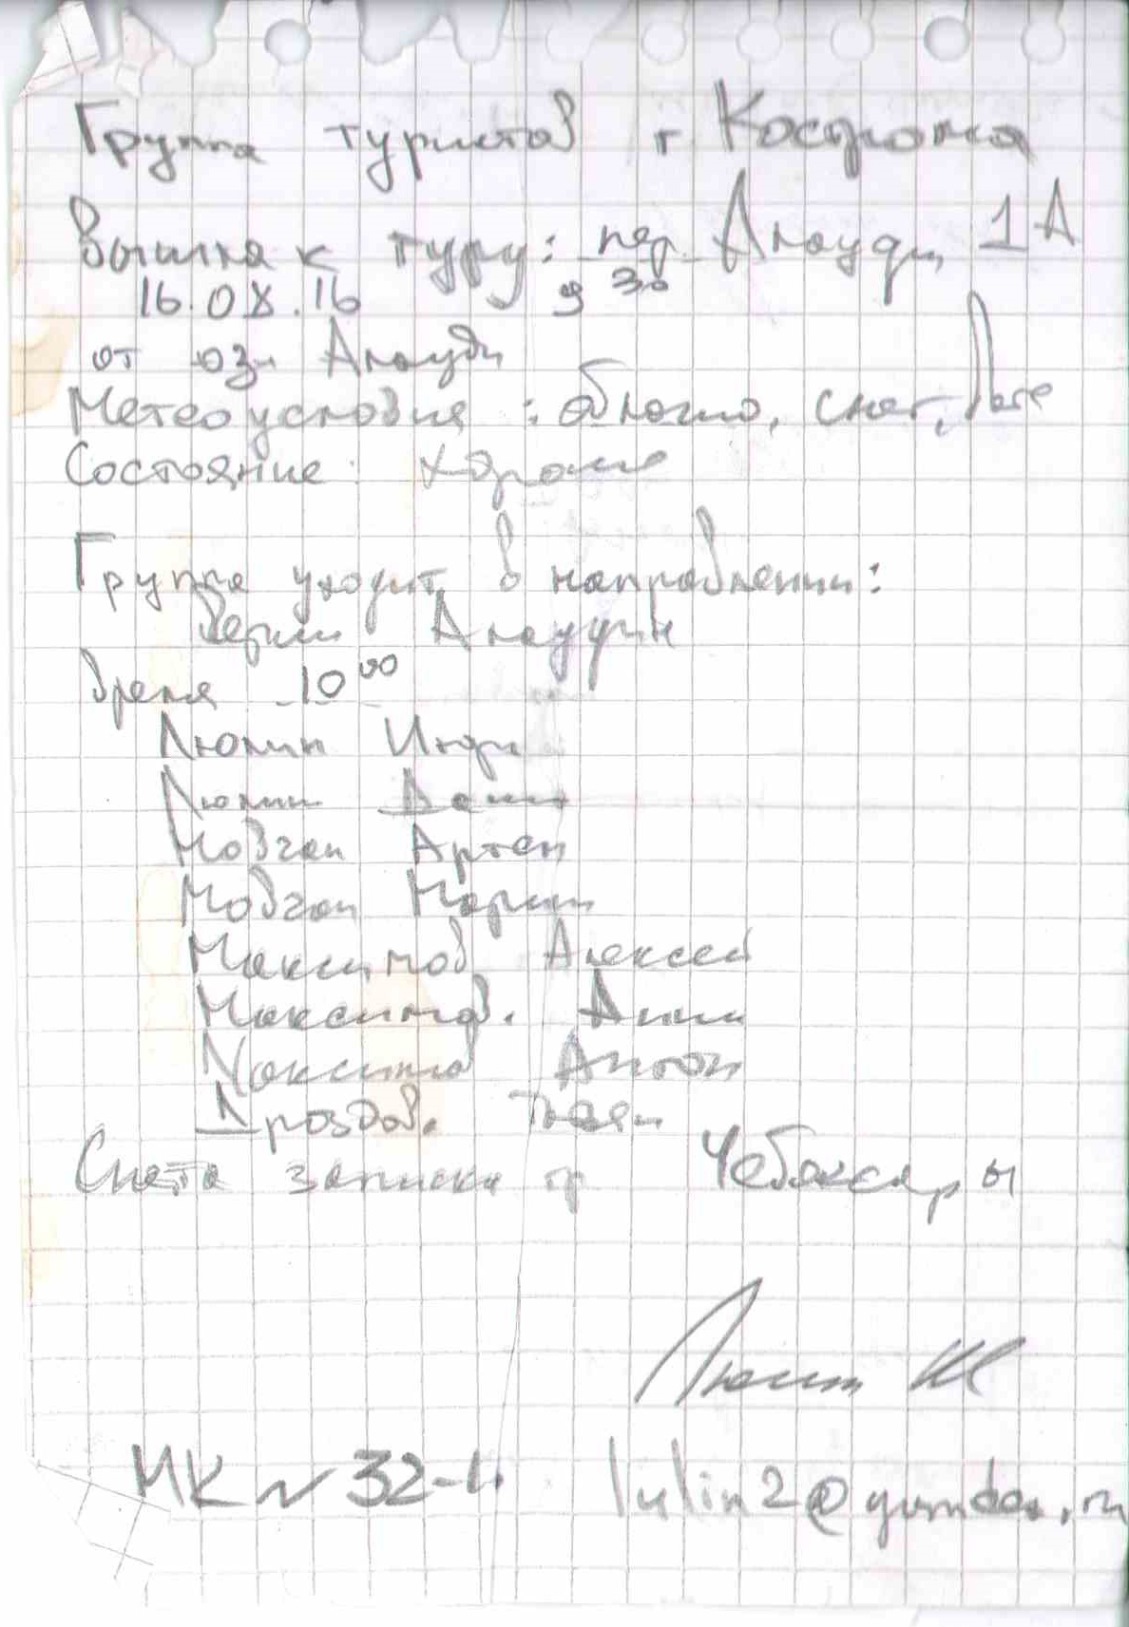 Группа туристов г Кострома
Вышла к туру: пер. Алауди 1А
16.08.16 9 30
от оз. Алауди
Метеоусловия: облачно, снег,
Состояние: хорошее
Группа уходит в направлении:
Алаудин
Время 10 00
Люлин
Люлин
Мовчан Артем
Мовчан Мария
Максимов Алексей
Максимов. Анна
Максимов Антон
Дроздов.
Снята записка гр Чебоксары
Люлин
МК № 32-4. lulin2@yandex.ru